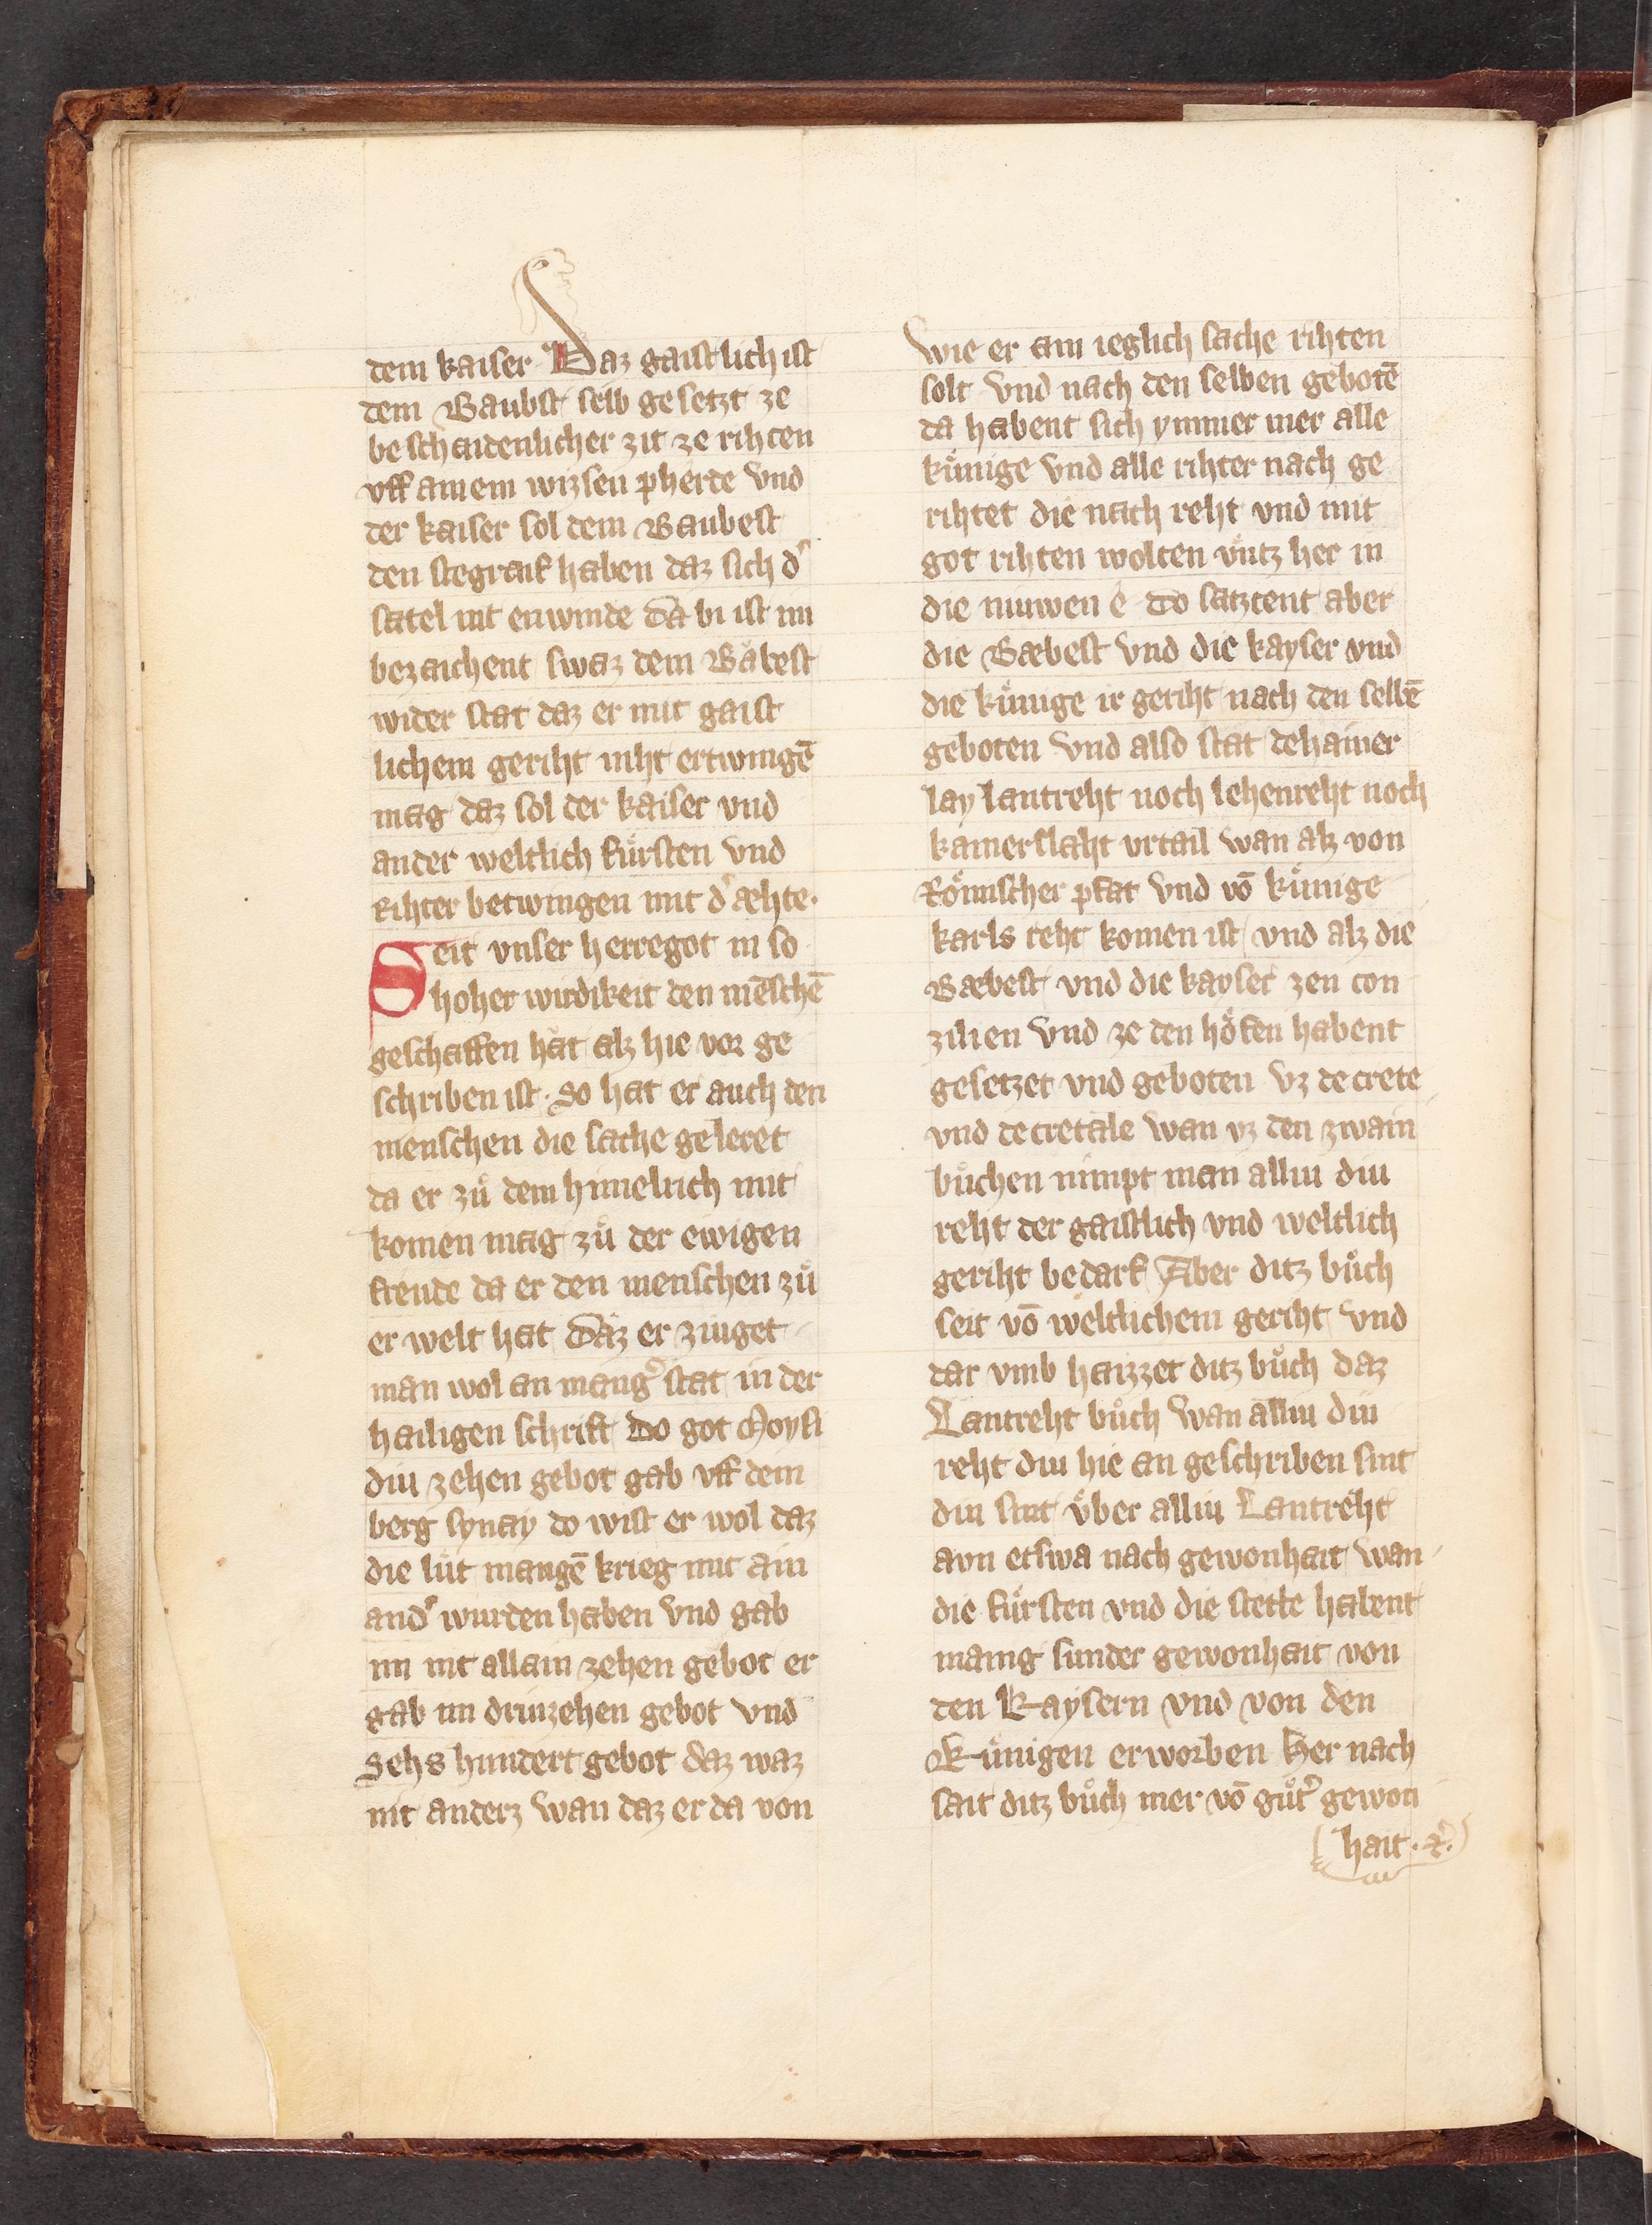 dem kaiser Daz gaistlich ist
dem Baubst selb gesetzt ze
beschaidenlicher zit ze rihten
vff ainem wizsen pherde vnd
der kaiser sol dem Baubest
den stegraif haben daz sich d͛
satel nit enwinde da bi ist im
bezaichent swaz dem Baͮbest
wider stat daz er mit gaist
lichem geriht niht ertwingē
mag daz sol der kaiser vnd
ander weltlich fuͤrsten vnd
Rihter betwingen mit d͛ æhte·
Seit vnser herregot in so
hoher wirdikeit den mēschē
geschaffen hat alz hie vor ge
schriben ist· So hat er auch den
menschen die sache geleret
da er zuͦ dem himelrich mit
komen mag zuͦ der ewigen
freude da er den menschen zuͦ
er welt hat Daz er ziuget
man wol an mang͛ stat in der
hailigen schrift Do got Moysi
diu zehen gebot gab vff dem
berg synay do wist er wol daz
die luͤt mangē krieg mit ain
and͛ wurden haben vnd gab
im nit allain zehen gebot er
gab im driuzehen gebot vnd
Sehs hundert gebot daz waz
nit anderz wan daz er da von
wie er ain ieglich sache rihten
solt vnd nach den selben gebotē
da habent sich ymmer mer alle
kuͤnige vnd alle rihter nach ge
rihtet die nach reht vnd mit
got rihten wolten vntz her in
die niuwen e do satztent aber
die Bæbest vnd die kayser vnd
die kuͤnige ir geriht nach den selbē
geboten vnd also stat dehainer
lay lantreht noch lehenreht noch
kamerslaht vrtail wan alz von
Roͤmischer pfat vnd vō kuͤnige
karls reht komen ist vnd alz die
Bæbest vnd die kayser zen con
zilien vnd ze den hoͤfen habent
gesetzet vnd geboten vz decrete
vnd decretale wan vz den zwain
buͤchen nimpt man alliu diu
reht der gaistlich vnd weltlich
geriht bedarf Aber ditz buͦch
seit vō weltlichem geriht vnd
dar vmb haizzet ditz buͦch daz
Lantreht buͦch wan alliu diu
reht diu hie an geschriben sint
diu sint uͤber alliu Lantreht
avn etswa nach gewonhait wan
die fuͤrsten vnd die stette habent
mang sunder gewonhait von
den Kaysern vnd von den
Kuͤnigen erworben Her nach
sait ditz buͦch mer vō guͦt͛ gewon
hait· ⁊͛·